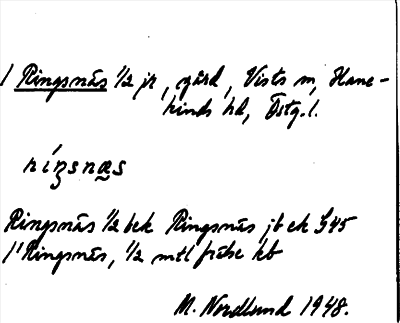 1 Ringsnäs 1/2 jr, gård, Vists sn, Hane-
kinds hd, Östg.l.
ríŋsnæs
Ringsnäs 1/2 bek Ringsnäs jb ek G45
1' Ringsnäs, 1/2 mtl frälse kb
M. Nordlund 1948.